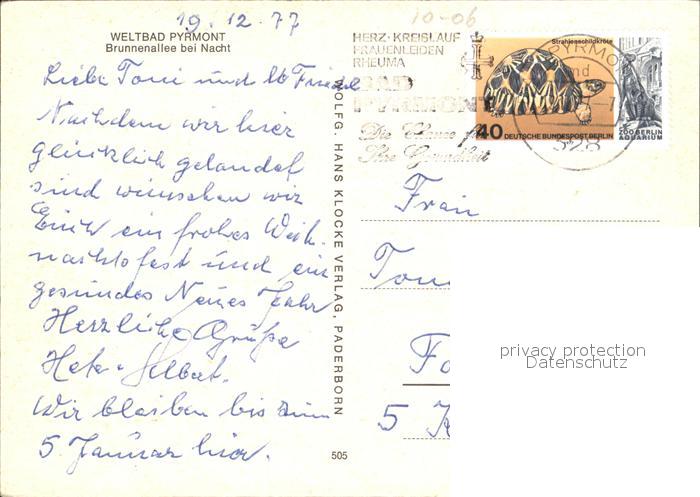 19.12.77
10-06
WELTBAD PYRMONT
Brunnenallee bei Nacht
Liebe Toni und lb Friedel
Nachdem wir hier
glücklich gelandet
sind wünschen wir
Euch ein frohes Weih-
nachtsfest und ein
gesundes Neues Jahr
Herzliche Grüße
Wir bleiben bis zum
5. Januar hier.
WOLFG. HANS KLOCKE VERLAG, PADERBORN
505
HERZ · KREISLAUF
FRAUENLEIDEN
RHEUMA
BAD
PYRMONT
Ihre Gesundheit
PYRMO
328
Strahlenschildkröte
40 DEUTSCHE BUNDESPOST BERLIN
ZOO BERLIN
AQUARIUM
Frau
5
privacy protection
Datenschutz